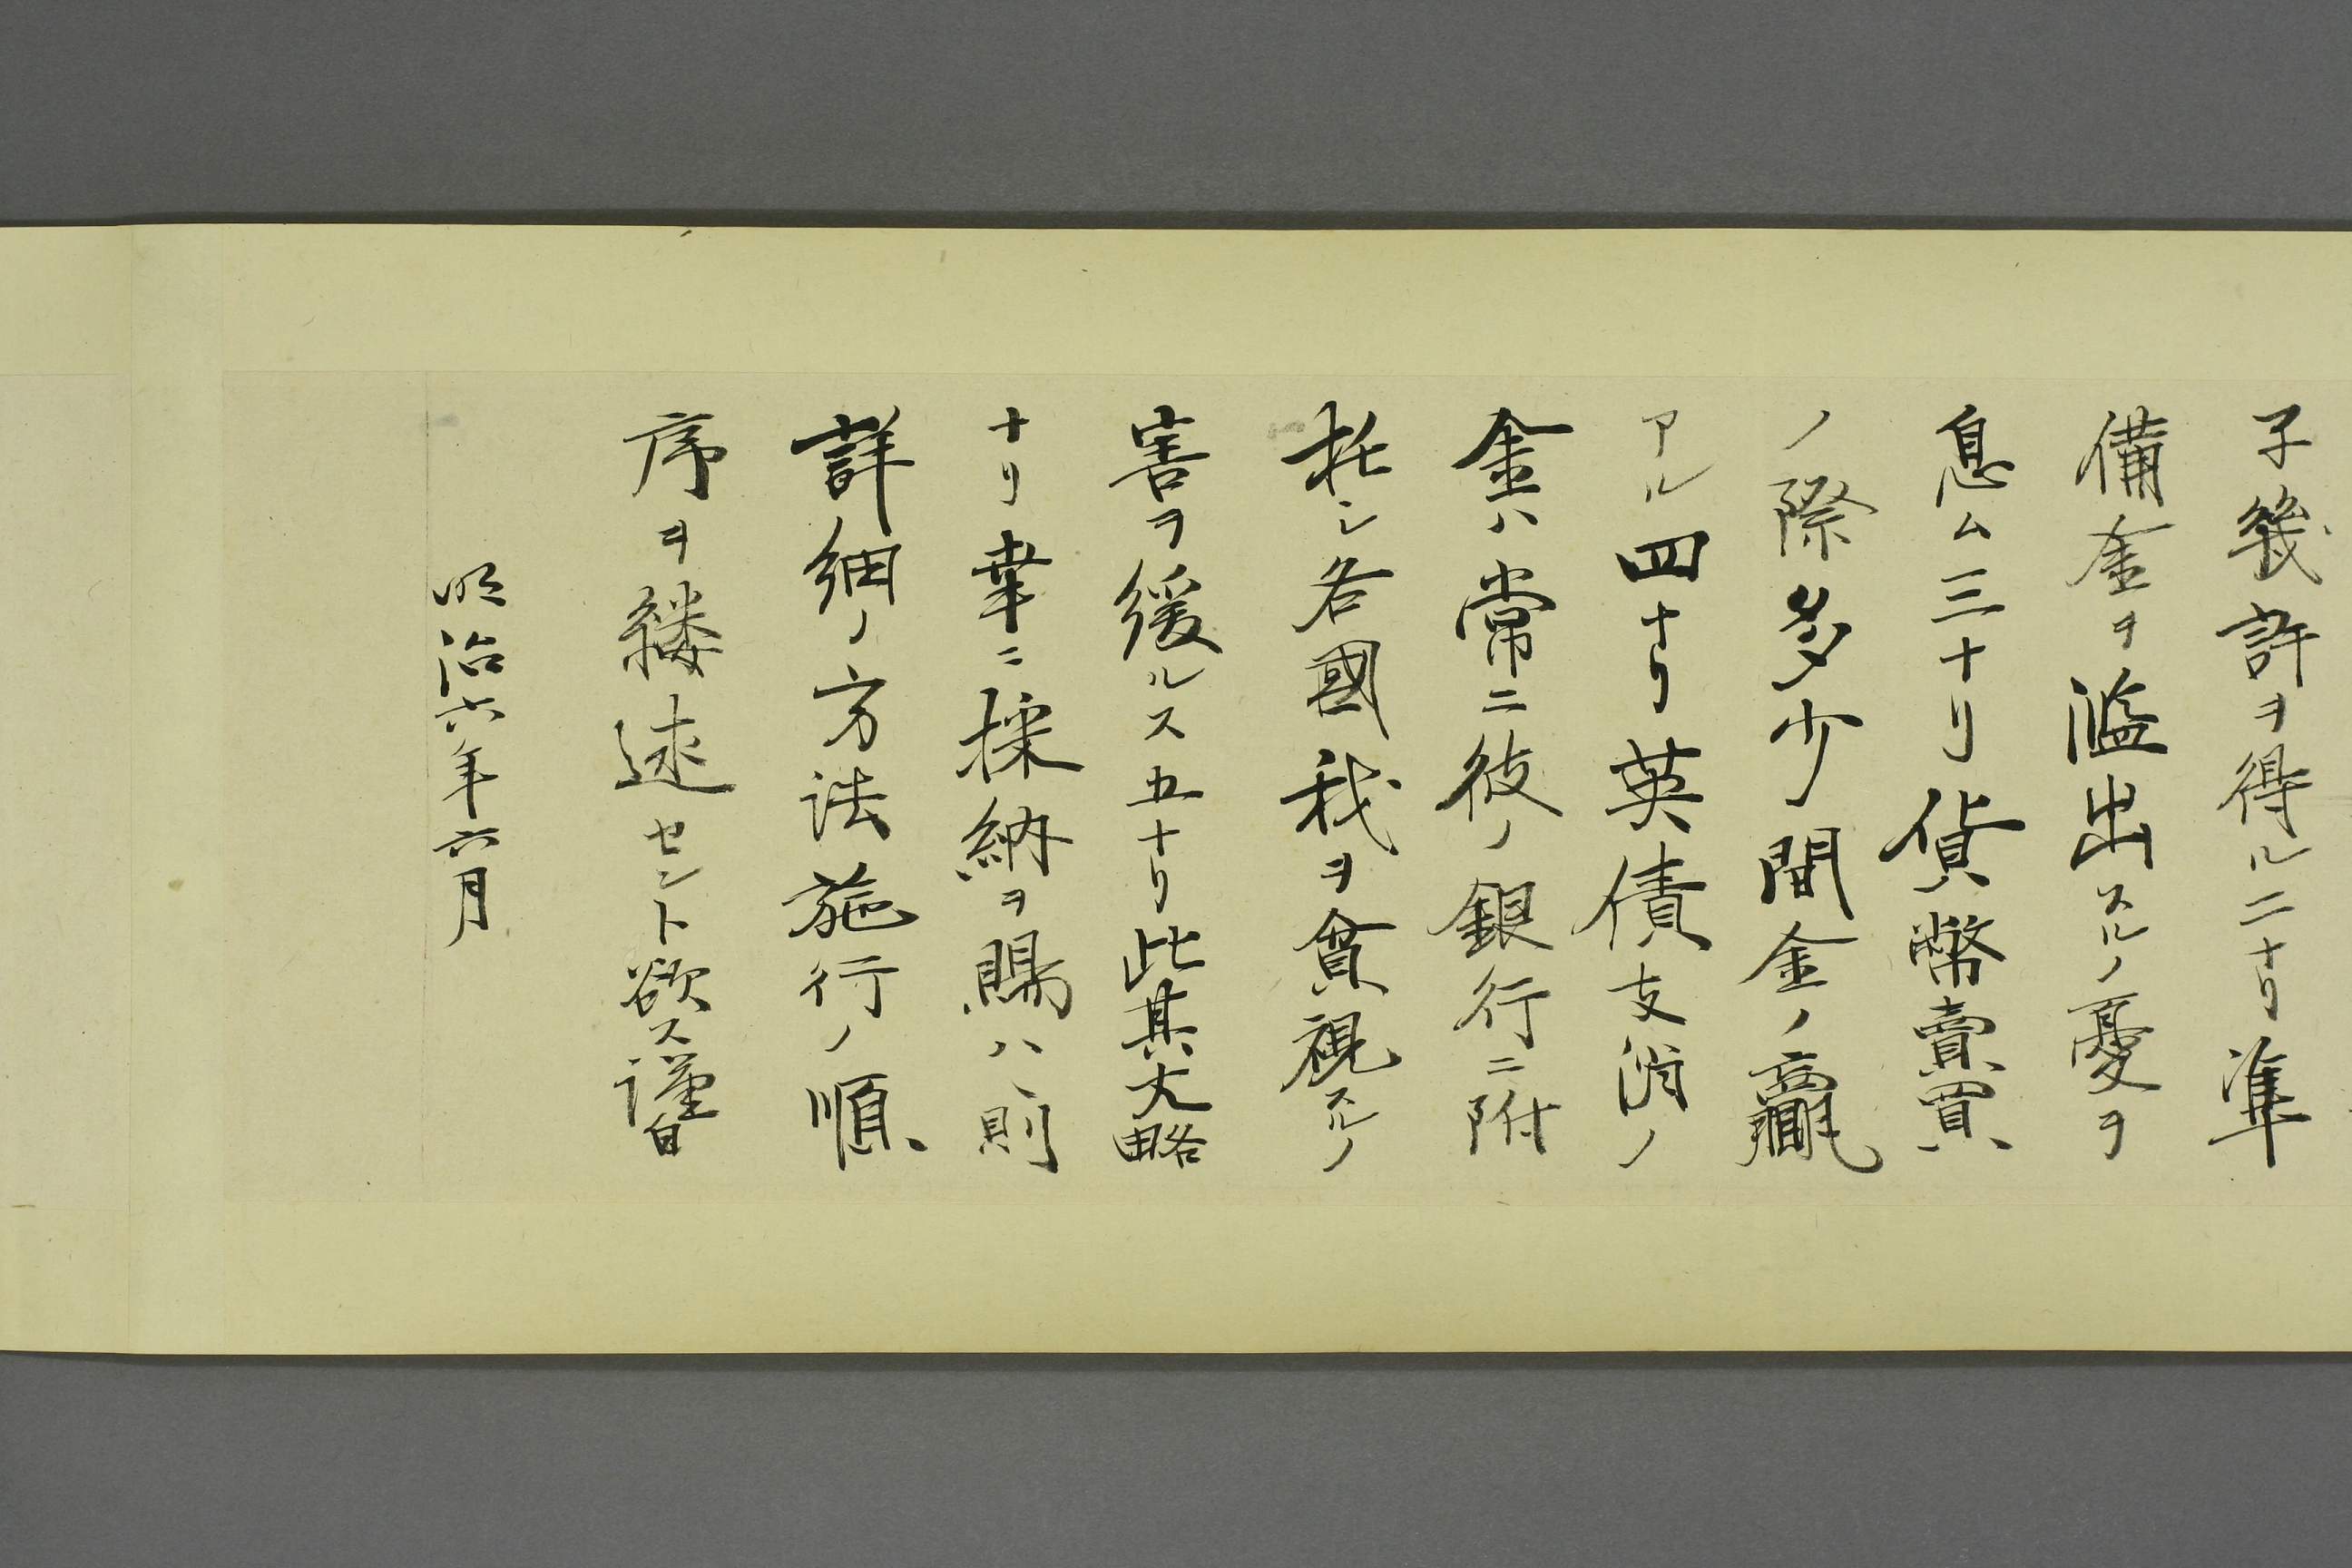 子幾許ヲ得ル二ナリ準
備金ヲ濫出スルノ憂ヲ
息ム三ナリ貨幣賣買
ノ際多少間金ノ贏
アル四ナリ英債支消ノ
金ハ常ニ彼ノ銀行ニ附
托シ各國我ヲ貧視スルノ
害ヲ緩ルス五ナリ此其大略
ナリ幸ニ採納ヲ賜ハヽ則
詳細ノ方法施行ノ順
序ヲ縷述セント欲ス謹白
明治六年六月